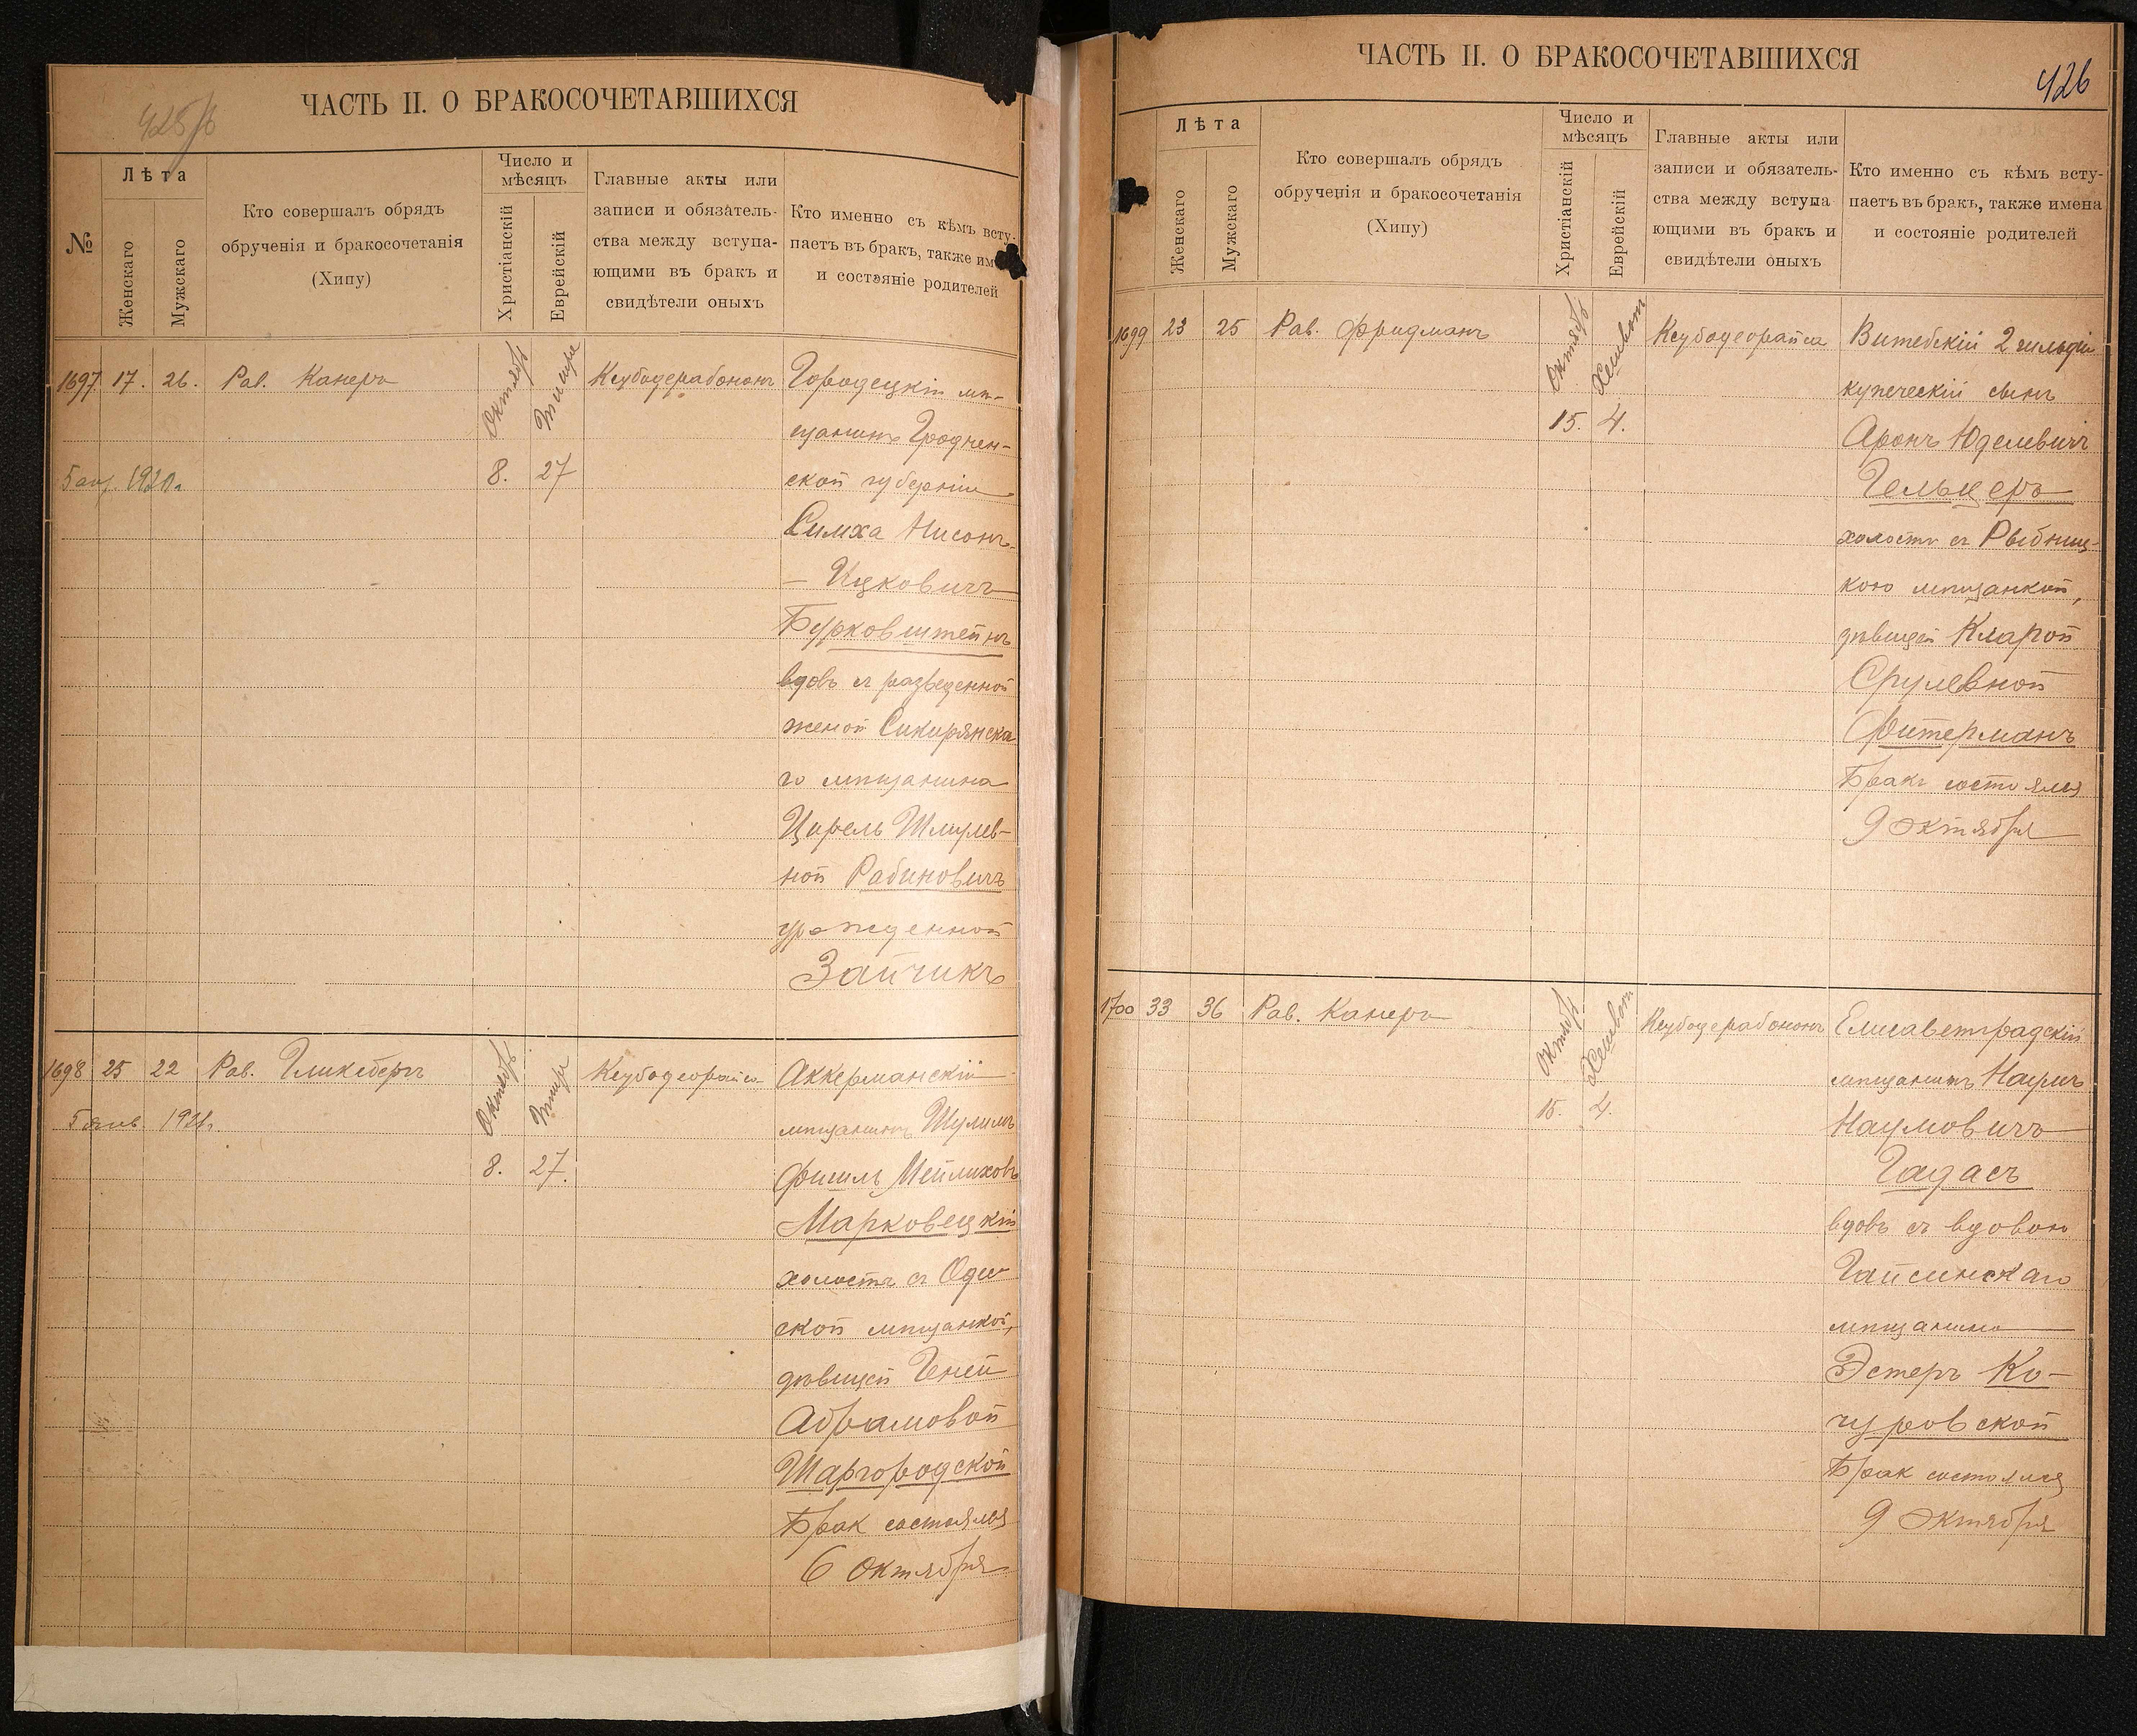 425/б
ЧАСТЬ II. О БРАКОСОЧЕТАВШИХСЯ
№
Лѣта
Женскаго
Мужскаго
Кто совершалъ обрядъ
обрученія и бракосочетанія
(Хипу)
Число и
мѣсяцъ
Христіанскій
Еврейскій
Главные акты или
записи и обязатель-
ства между вступа-
ющими въ бракъ и
свидѣтели оныхъ
Кто именно съ кѣмъ всту-
паетъ въ бракъ, также им
и состояніе родителей
1697 17. 26. Рав. Канеръ
Октябрь
Тишри
8. 27
Ксубодерабононъ
5 1920 г
Городецкій мѣ-
щанинъ Гроднен-
ской губерніи
Симха Нисонъ-
— Ицковичъ
Бурковштейнъ
вдовъ съ разведенной
женой Сикирянска
го мѣщанина
Цирель Шмулев-
ной Рабиновичъ
урожденной
Зайчикъ
1698 25 22 Рав. Гликсбергъ
Октябрь
Тишри
8. 27.
Ксубодеорайса
5 янв. 1921г.
Аккерманскій
мѣщанинъ Шулимъ
Фишль Мейлиховъ
Марковецкій
холостъ съ Одес
ской мѣщанкой,
дѣвицей Геней
Абрамовой
Шаргородской
Бракъ состоялся
6 Октября
ЧАСТЬ II. О БРАКОСОЧЕТАВШИХСЯ
426
Лѣта
Женскаго
Мужскаго
Кто совершалъ обрядъ
обрученія и бракосочетанія
(Хипу)
Число и
мѣсяцъ
Христіанскій
Еврейскій
Главные акты или
записи и обязатель-
ства между вступа
ющими въ бракъ и
свидѣтели оныхъ
Кто именно съ кѣмъ всту-
паетъ въ бракъ, также имена
и состояніе родителей
1699 23 25 Рав. Фридманъ
Октябрь
Хешвон
15. 4.
Ксубодеорайса
Витебскій 2 гильдіи
купеческій сынъ
Аронъ Юделевичъ
Гельцеръ
холостъ съ Рыбниц-
кою мѣщанкой,
дѣвицей Кларой
Срулевной
Фитерманъ
Бракъ состоялся
9 Октября
1700 33 36 Рав. Канеръ
Октябрь
Хешвон
15. 4.
Ксубодерабононъ
Елисаветградскій
мѣщанинъ Наумъ
Наумовичъ
Гадасъ
вдовъ съ вдовою
Гайсинскаго
мѣщанина
Эстеръ Ко-
чуровской
Бракъ состоялся
9 Октября